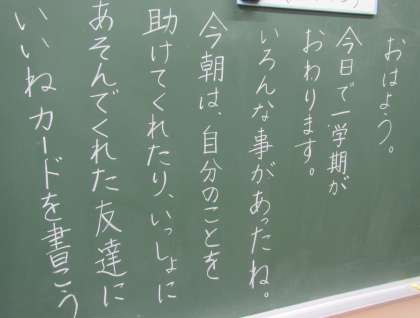 おはよう。
今日で一学期が
おわります。
いろんな事があったね。
今朝は、自分のことを
助けてくれたり、いっしょに
あそんでくれた友達に
いいねカードを書こう